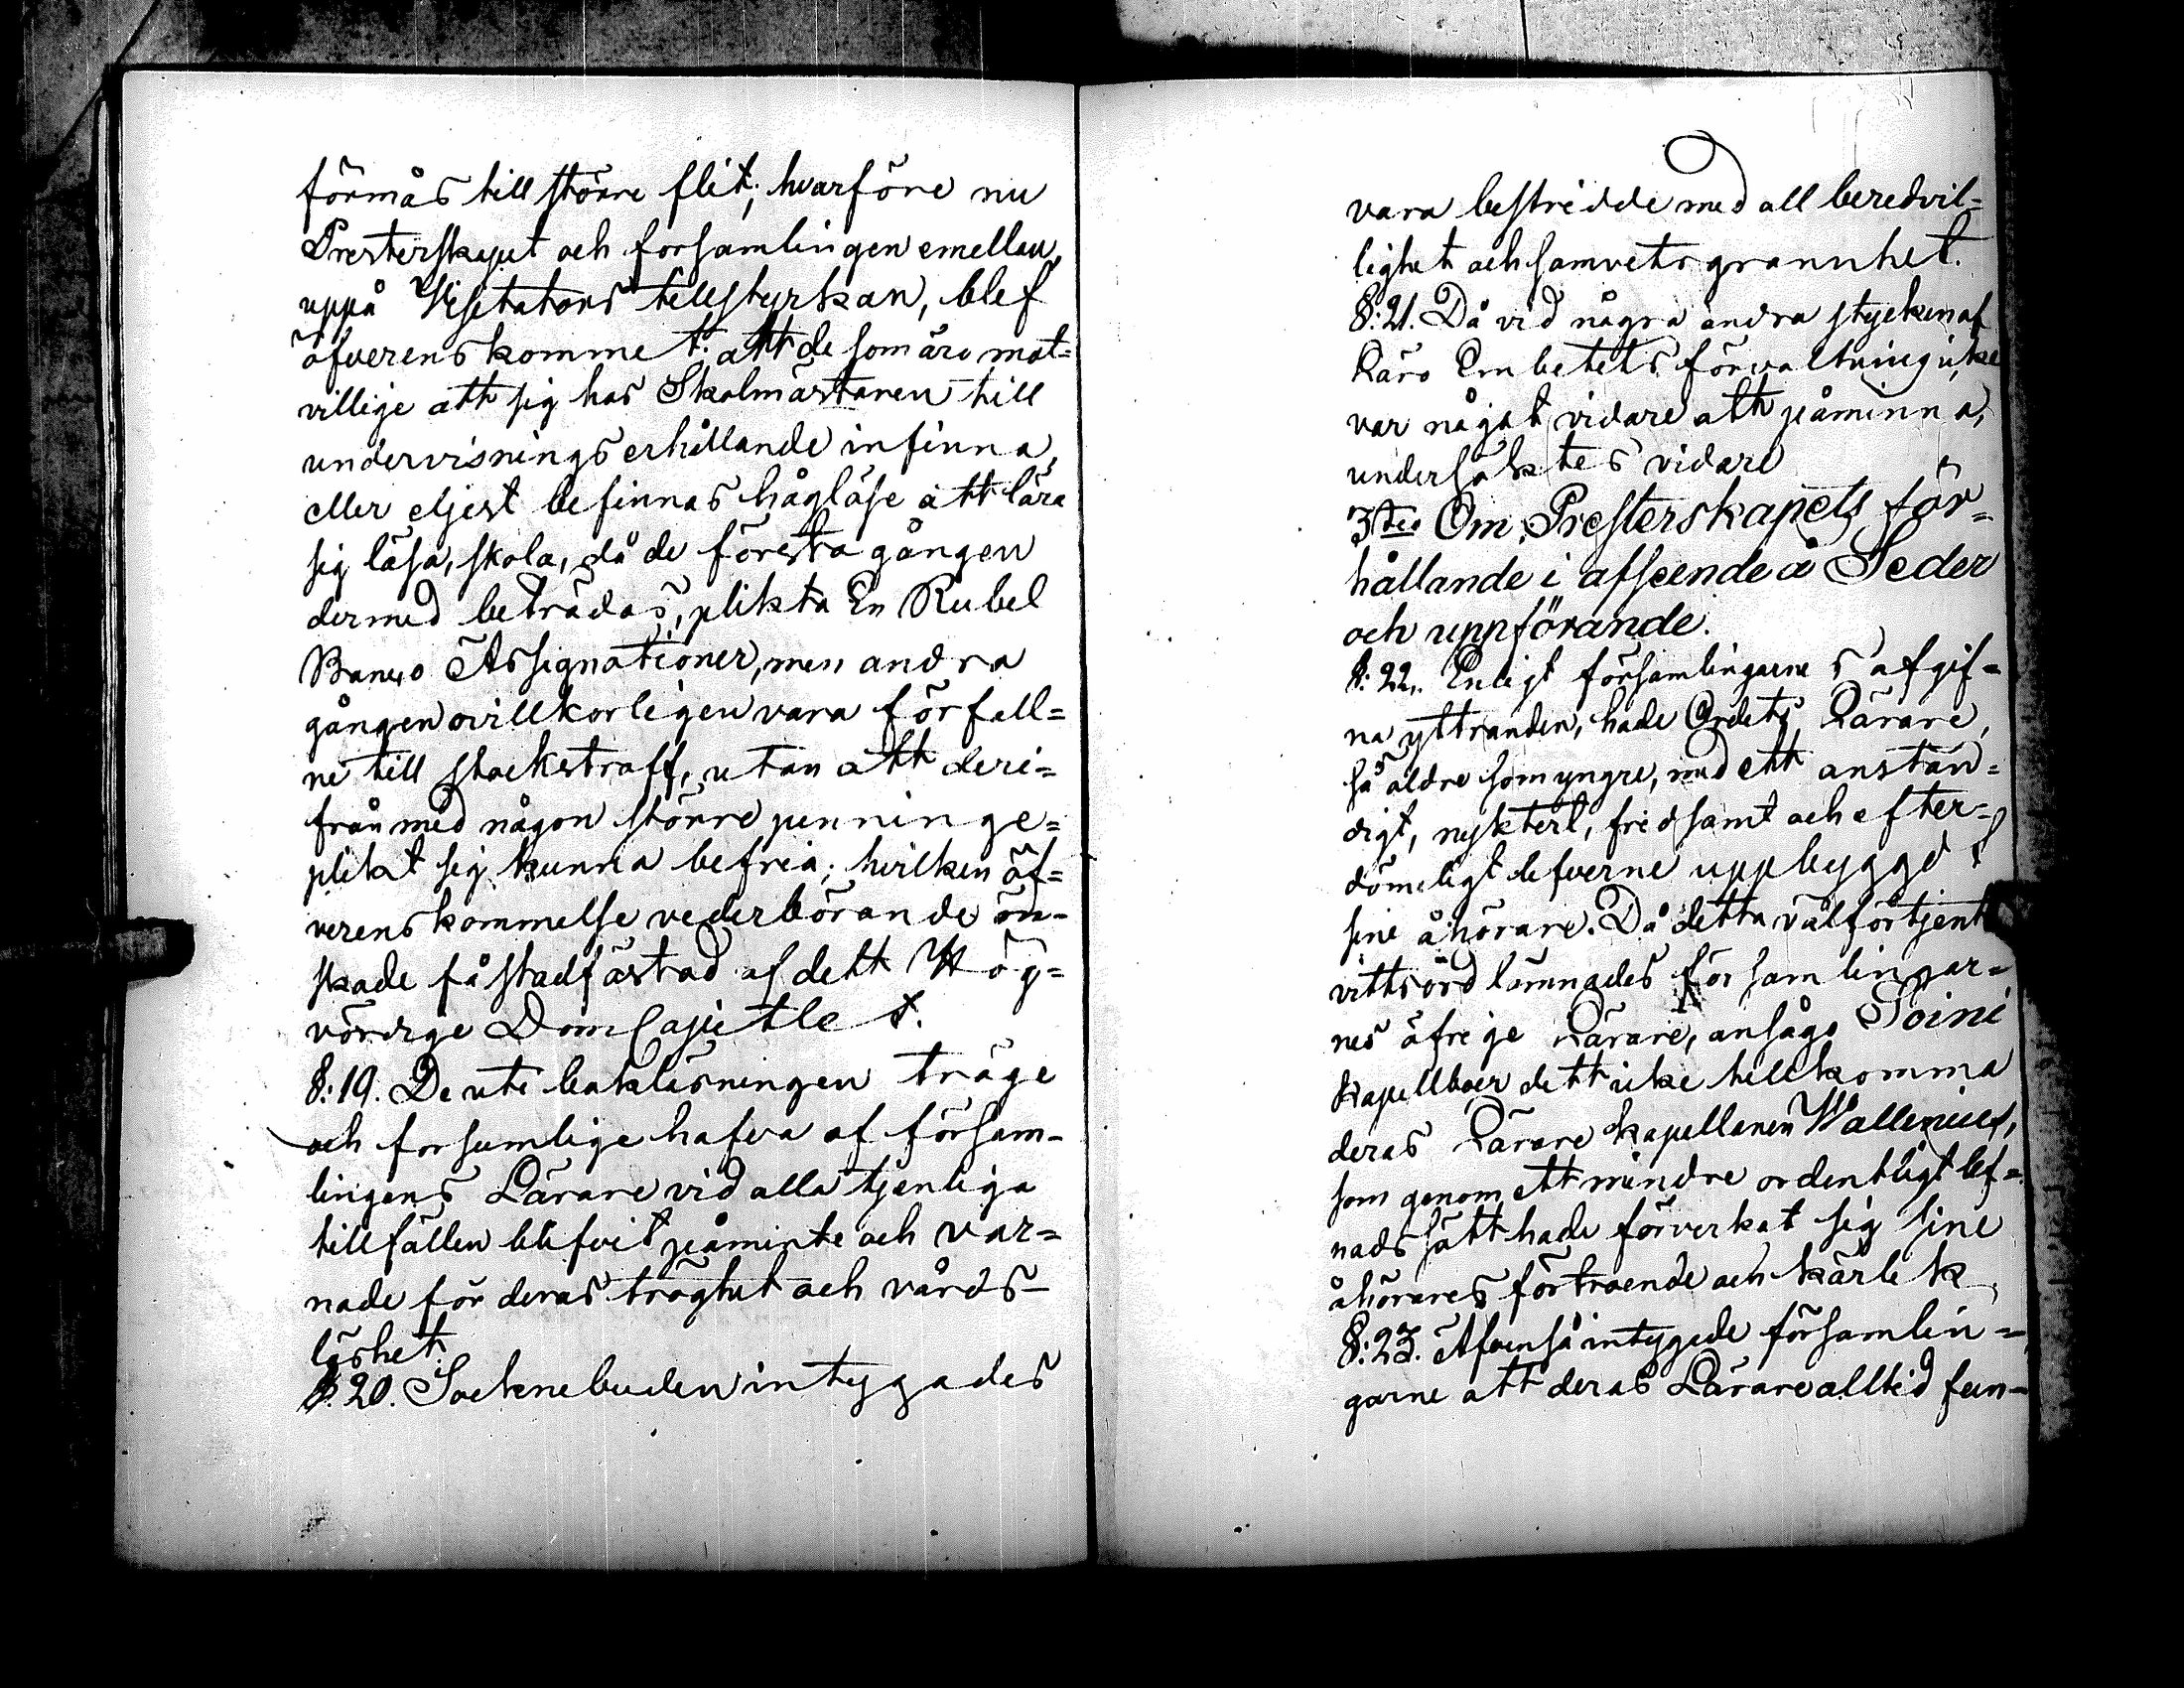 förmås till större flit; hvarföre nu
Presterskapet och forsamlingen emellan,
uppå Visitators tillstyrkan, blef
öfverenskommet: att de som äro mot=
villige att sig hos Skolmästaren till
undervisnings erhållande infinna,
eller eljest befinnas håglöse att lära
sig läsa, skola, då de första gången
dermed beträdas, plikta En Rubel
Banco Assignationer, men andra
gången ovillkorligen vara förfall=
ne till stockstraff, utan att deri=
från med någon större penninge=
plikt sig kunna befria; hvilken öf=
verenskommelse vederbörande ön-
skade få stadfästad af dett Hög=
vördige DomCapitlet.
§: 19. De uti bokläsningen tröge
och forsumlige hafva af försam-
lingens Lärare vid alla tjenliga
tillfällen blifvit påminte och var=
nade för deras tröghet och vårds-
löshet.
§. 20. Socknebuden intygades
vara bestridde med all beredvil=
lighet och samvetsgrannhet.
§: 21. Då vid några andra stycken af
Läro Embetets förvaltning icke
var något vidare att påminna,
undersöktes vidare
3tio Om Presterskapets för=
hållande i afseende å Seder
och uppförande.
§: 22. Enligt församlingarnes afgif=
na yttranden, hade Ordets Lärare,
så äldre som yngre, med ett anstän=
digt, nyktert, fridsamt och efter=
dömeligt lefverne uppbyggdt
sine åhörare. Då detta välförtjent
vittsord lämnades församlingar=
nes öfrige Lärare, ansågo Soini
Kapellboer dett icke tillkomma
deras Lärare Kapellanen Wallenius,
som genom ett mindre ordentligt lef=
nadssätt hade förverkat sig sine
åhörares förtroende och kärlek.
§: 23. Äfvenså intygade församlin=
garne att deras Lärare alltid fun-